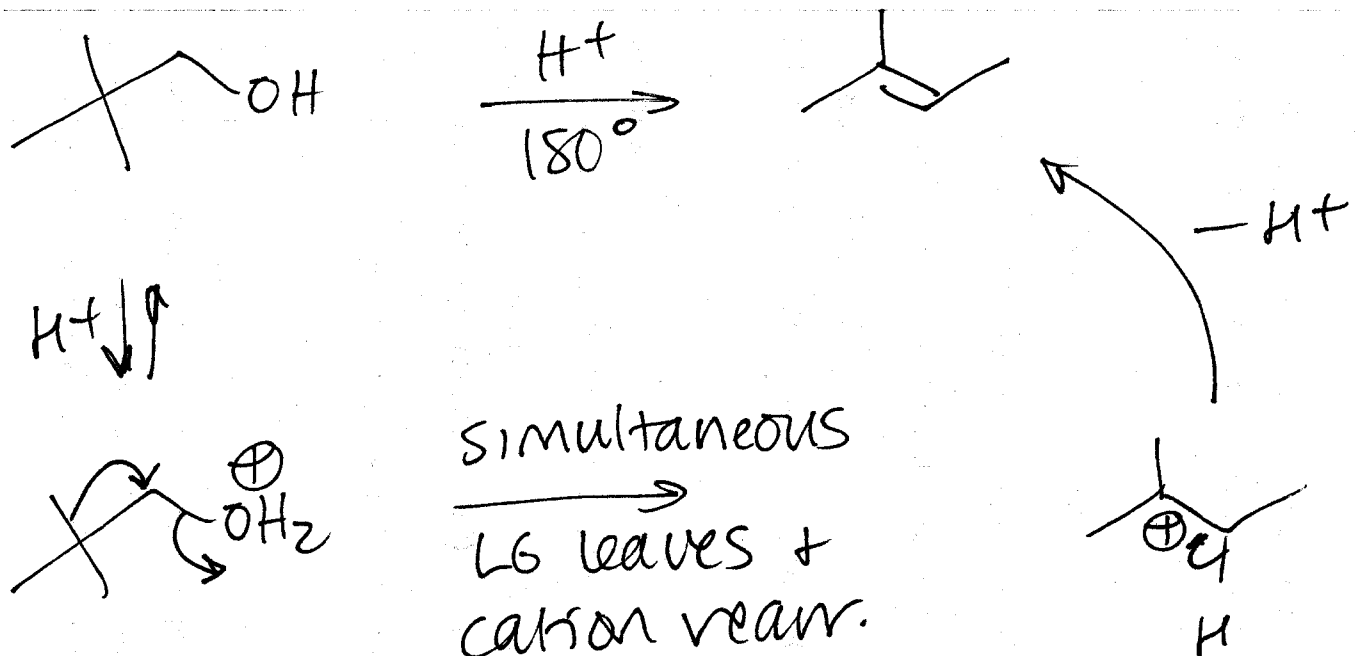 OH
H+
180°
- H+
H+
⊕
OH2
simultaneous
LG leaves +
cation rearr.
⊕
H